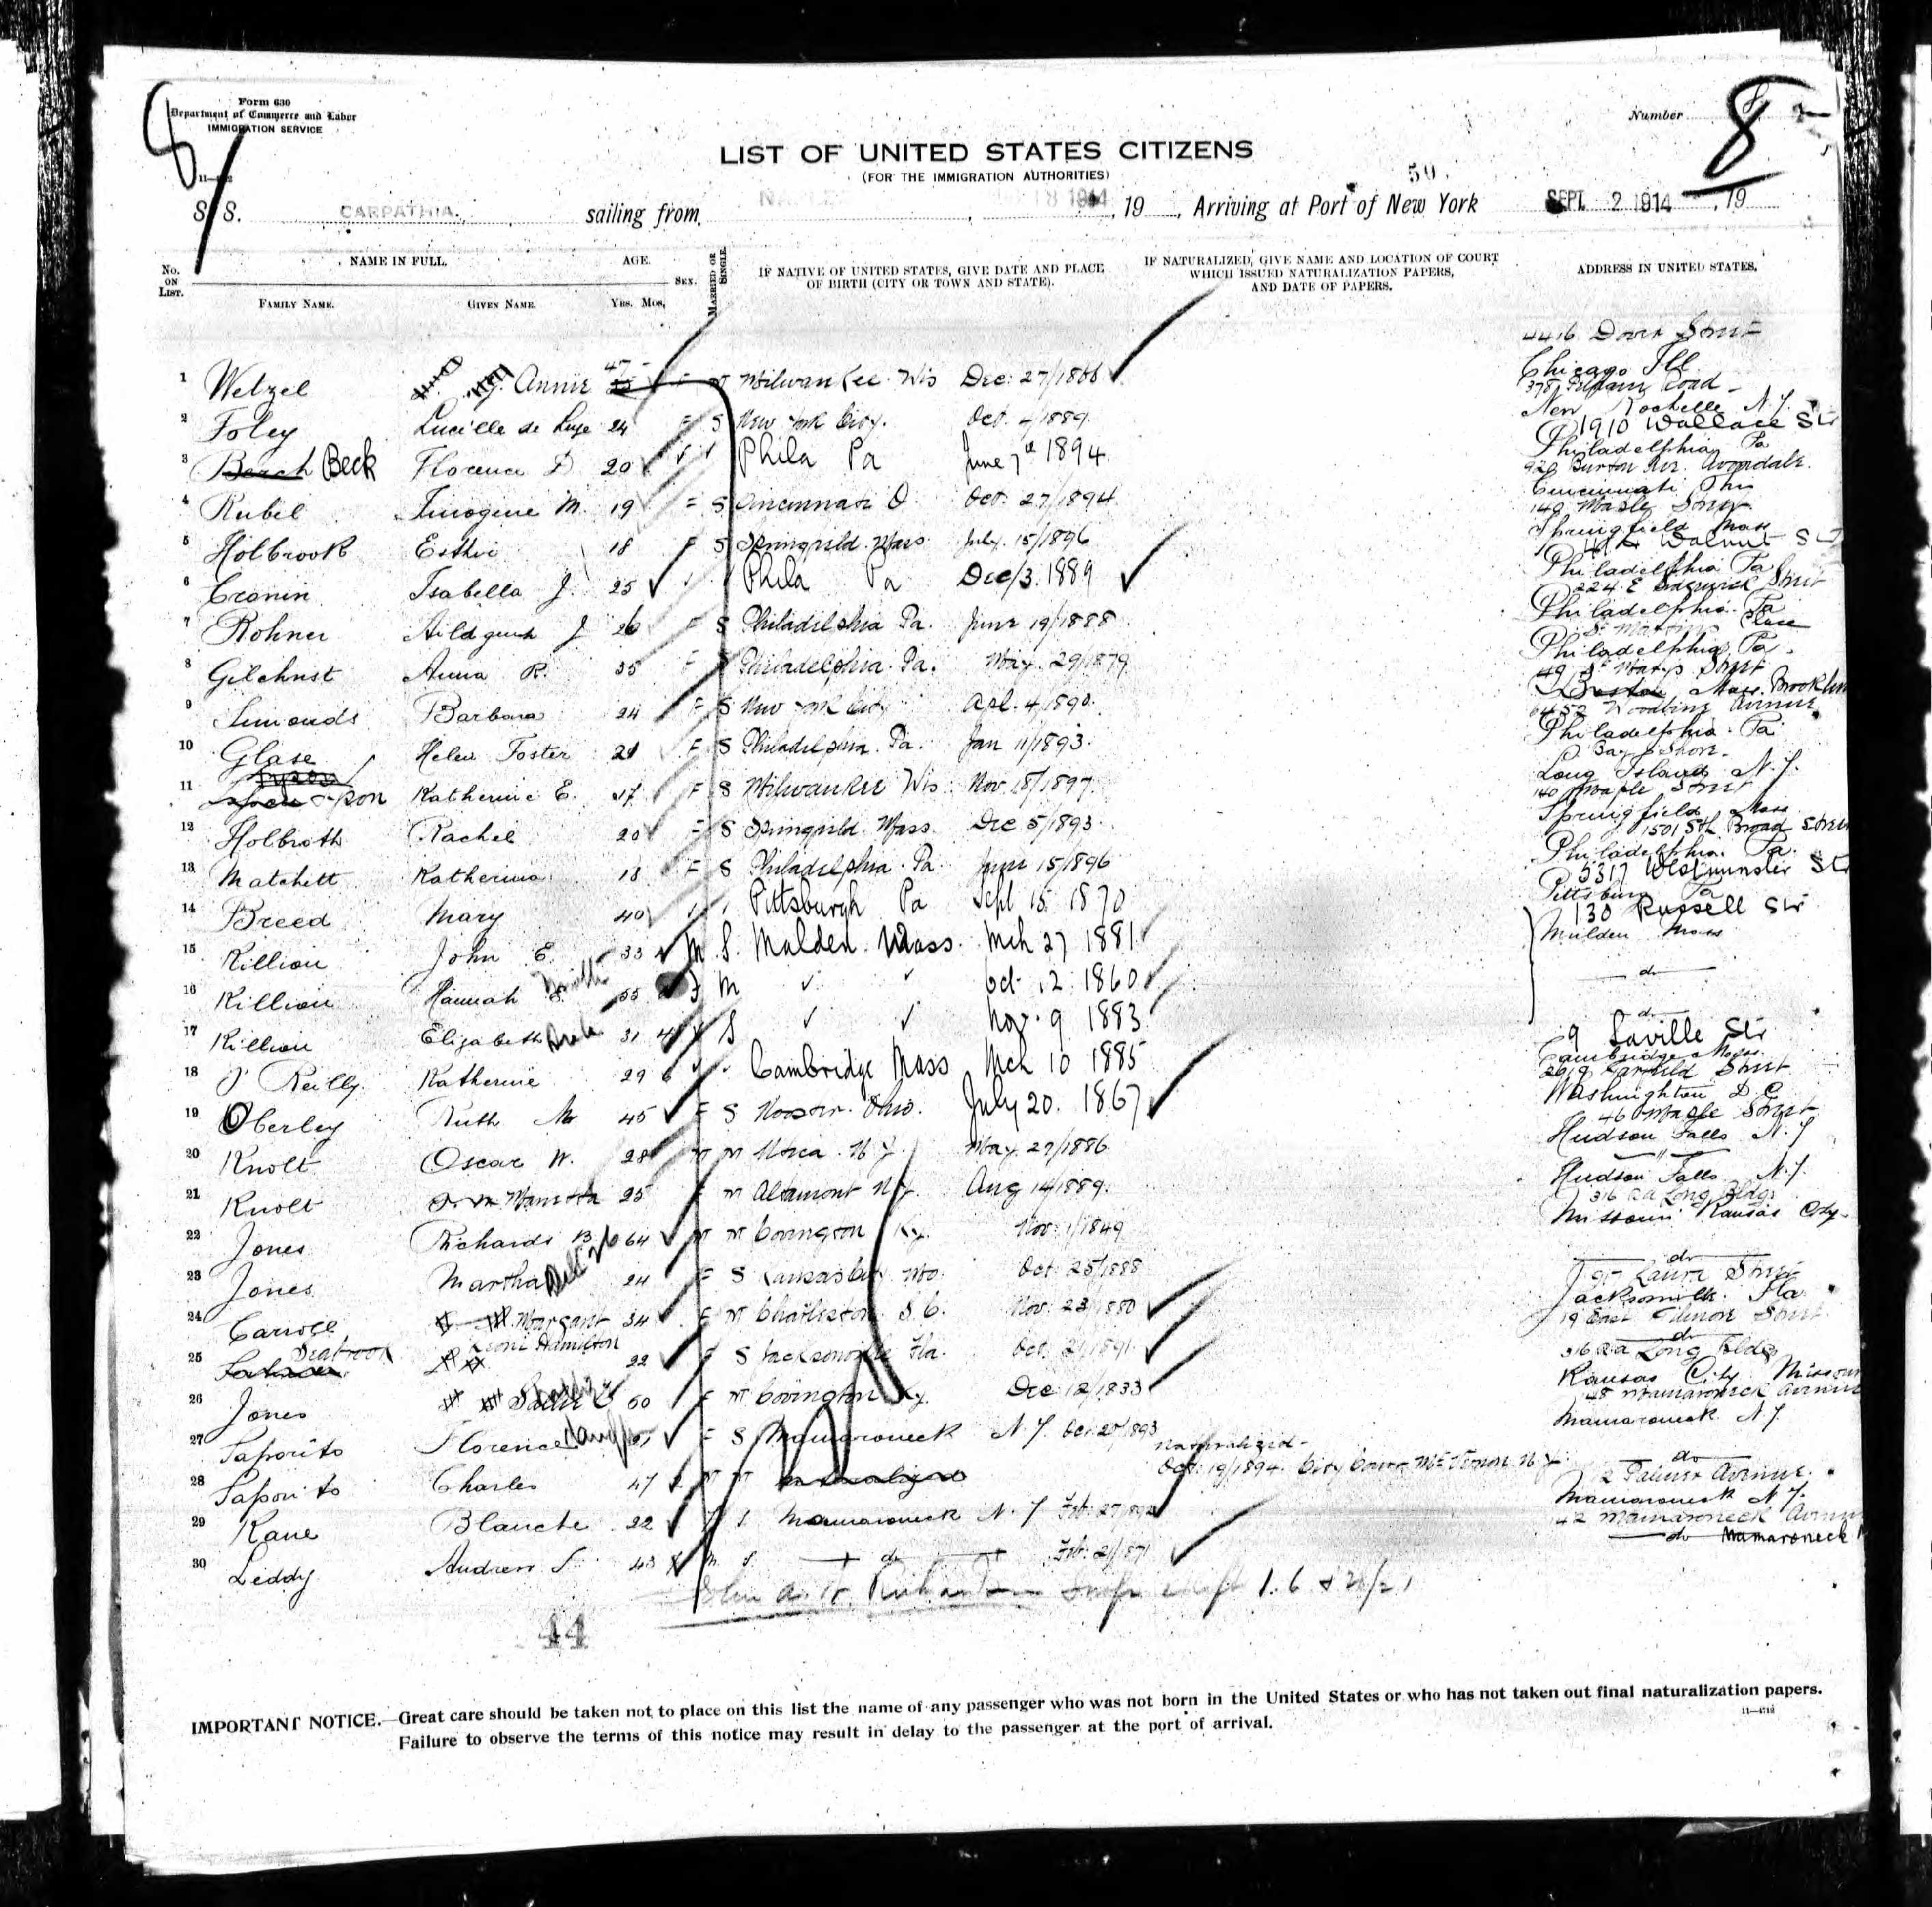 Form 630
Department of Commerce and Labor
IMMIGRATION SERVICE
Number 8
LIST OF UNITED STATES CITIZENS
(FOR THE IMMIGRATION AUTHORITIES)
50.
S. S. CARPATHIA. sailing from 18 1914, 19 , Arriving at Port of New York SEPT. 2 1914, 19
No. ON LIST. NAME IN FULL. AGE. SEX. MARRIED OR SINGLE. IF NATIVE OF UNITED STATES, GIVE DATE AND PLACE OF BIRTH (CITY OR TOWN AND STATE). IF NATURALIZED, GIVE NAME AND LOCATION OF COURT WHICH ISSUED NATURALIZATION PAPERS, AND DATE OF PAPERS. ADDRESS IN UNITED STATES.
FAMILY NAME. GIVEN NAME. YRS. MOS.
4416 Dover Street
1 Wetzel Annie 45 F M Milwaukee Wis Dec. 27/1868 Chicago Ill
2 Foley Lucille de Luze 24 F S New York City. Oct. 4/1889 New Rochelle N.Y.
1910 Wallace Str
3 Beck Florence D 20 Phila Pa June 7th 1894 Philadelphia Pa
Burton Ave. Avondale.
4 Rubel Imogene M. 19 F S Cincinnati O Oct. 27/1894 Cincinnati Ohio
140 Maple Street
5 Holbrook Esther 18 F S Springfield. Mass July. 15/1896 Springfield Mass
Walnut St
6 Cronin Isabella J. 25 Phila Pa Dec/3. 1889 Philadelphia Pa
224 E Sedgwick Street
7 Rohner J 26 F S Philadelphia Pa. June 19/1888 Philadelphia. Pa
St Martins Place
8 Gilchrist Anna R. 35 F S Philadelphia. Pa. May. 29/1879 Philadelphia, Pa.
49 St Marys Street
9 Simonds Barbara 24 F S New York City Apl. 4/1890. Boston, Mass. Brookline
6452 Woodbine Avenue
10 Glase Helen Foster 21 F S Philadelphia. Pa. Jan 11/1893. Philadelphia. Pa
Bay Shore.
11 Katherine E. 17 F S Milwaukee Wis Nov. 18/1897. Long Island N.Y.
140 Maple Street
12 Rachel 20 F S Springfield Mass Dec 5/1893. Springfield Mass
1501 Sth Broad Street
13 Matchett Katherine 18 F S Philadelphia. Pa June 15/1896 Philadelphia. Pa.
5317 Westminster Str
14 Breed Mary 40 Pittsburgh Pa Sept 15 1870 Pittsburg Pa
130 Russell Str
15 Killion John E. 33 M. S. Malden. Mass. Mch 27 1881 Malden Mass
16 Killion Hannah 55 F M Oct. 12. 1860 do
17 Killion Elizabeth 31 4 S Nov. 9 1883 do
9 Saville Str
18 O'Reilly. Katherine 29 6 Cambridge Mass Mch 10 1885 Cambridge Mass.
2019 Garfield Street
19 Oberley Ruth M 45 F S Wooster. Ohio. July 20. 1867 Washington D.C
46 Maple Street
20 Knolt Oscar W. 28 M M Utica. N.Y. May. 27/1886 Hudson Falls N.Y
21 Knolt 25 F M Altamont N.Y. Aug 14/1889. Hudson Falls N.Y.
316 RA Long Bldg.
22 Jones Richards B 64 M M Covington Ky. Nov. 1/1849 Missouri Kansas City.
23 Jones Martha 24 F S Kansas City Mo. Oct. 25/1888 do
Laura Street
24 Carroll Margaret 34 F M Charleston S.C. Nov. 23/1880 Jacksonville. Fla
19 East Street
25 Seabrook Hamilton 22 F S Jacksonville Fla. Oct. 21/1891. do
316 RA Long Bldg
26 Jones Sallie C 60 F M Covington Ky. Dec 12/1833 Kansas City Missouri
48 Mamaroneck Avenue
27 Saporito Florence 21 F S Mamaroneck N.Y. Oct. 25/1893 Mamaroneck N.Y.
naturalized-
28 Saporito Charles 47 M M naturalized Oct. 19/1894. City Court Mt Vernon N.Y. do
2 Palmer Avenue.
29 Kane Blanche 22 F S Mamaroneck N.Y Feb. 27/1892 Mamaroneck N.Y.
42 Mamaroneck Avenue
30 Leddy Andrew S 43 M S do Feb. 21/1871 do Mamaroneck
44
IMPORTANT NOTICE.—Great care should be taken not to place on this list the name of any passenger who was not born in the United States or who has not taken out final naturalization papers.
Failure to observe the terms of this notice may result in delay to the passenger at the port of arrival.
11—4712